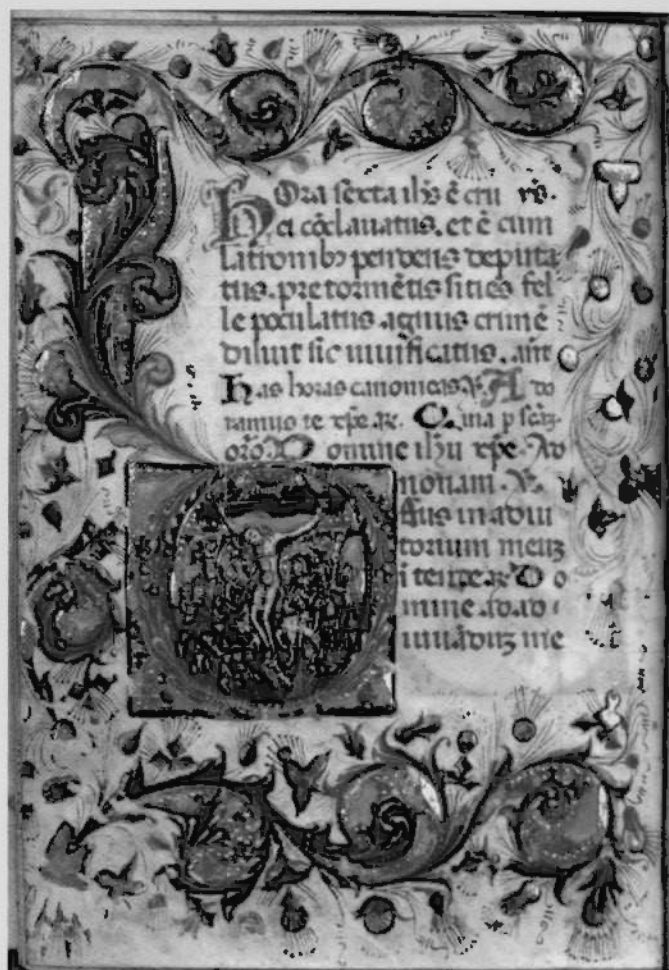 Ora sexta ihs ē cru
ci cōclavatus. et ē cum
latronibꝫ pendens deputa
tus. pre tormētis sities fel
le poculatus. agnus crimē
diluit sic iuuificatus. añt
has horas canonicas. ꝟ. Ado
ramus te xpe. ꝶ. Quia p scāꝫ
orō. Domine ihu xpe. Ad
nonam. ꝟ.
Eus in adiu
torium meuꝫ
intende. ꝶ. Do
mine ad ad
iuuāduꝫ me